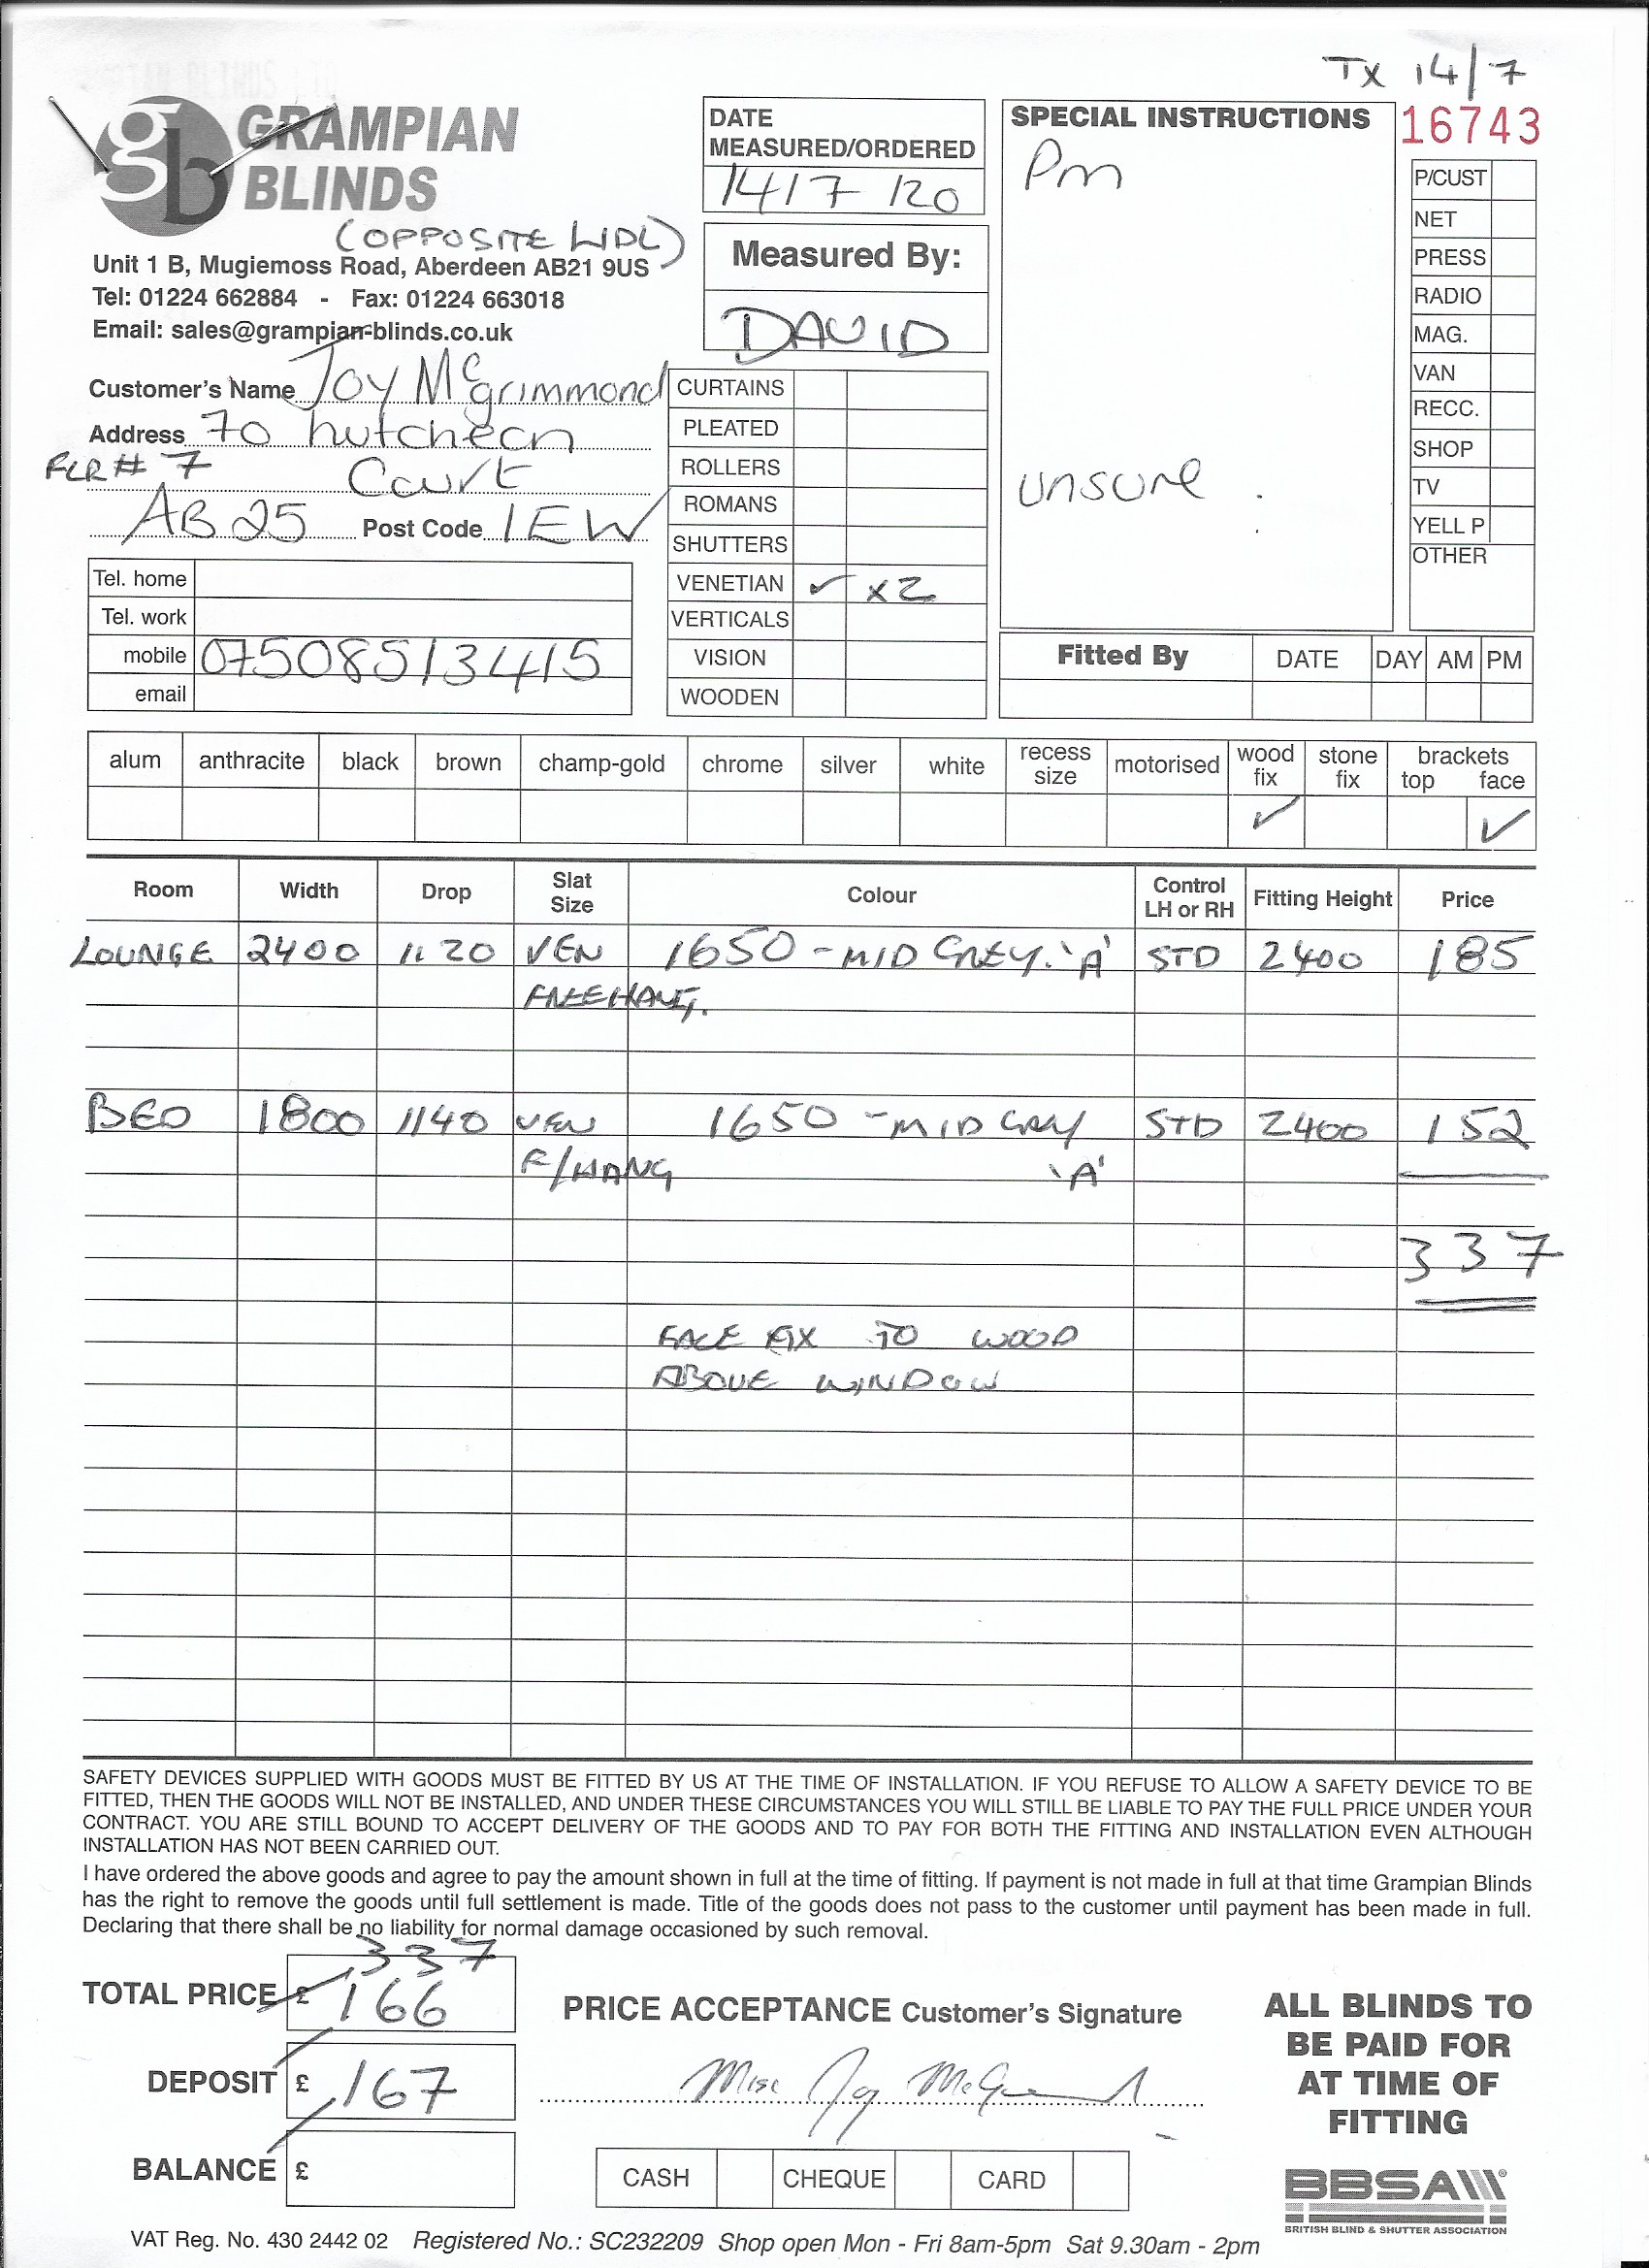 TX 14/7
GRAMPIAN
BLINDS
(OPPOSITE LIDL)
Unit 1 B, Mugiemoss Road, Aberdeen AB21 9US
Tel: 01224 662884 - Fax: 01224 663018
Email: sales@grampian-blinds.co.uk
DATE
MEASURED/ORDERED
14/7/20
Measured By:
DAVID
SPECIAL INSTRUCTIONS
Pm
unsure
16743
P/CUST
NET
PRESS
RADIO
MAG.
VAN
RECC.
SHOP
TV
YELL P
OTHER
Customer's Name Joy McGrimmond
Address 70 hutcheon
FLR # 7 Court
AB25 Post Code 1EW
Tel. home
Tel. work
mobile 07508513415
email
CURTAINS
PLEATED
ROLLERS
ROMANS
SHUTTERS
VENETIAN ✓ x2
VERTICALS
VISION
WOODEN
Fitted By DATE DAY AM PM
alum anthracite black brown champ-gold chrome silver white recess size motorised wood fix stone fix brackets top face
✓ ✓
Room Width Drop Slat Size Colour Control LH or RH Fitting Height Price
LOUNGE 2400 1120 VEN 1650 - MID GREY. 'A' STD 2400 185
FREEHANG.
BED 1800 1140 VEN 1650 - MID GREY STD 2400 152
F/HANG 'A'
337
FACE FIX TO WOOD
ABOVE WINDOW
SAFETY DEVICES SUPPLIED WITH GOODS MUST BE FITTED BY US AT THE TIME OF INSTALLATION. IF YOU REFUSE TO ALLOW A SAFETY DEVICE TO BE
FITTED, THEN THE GOODS WILL NOT BE INSTALLED, AND UNDER THESE CIRCUMSTANCES YOU WILL STILL BE LIABLE TO PAY THE FULL PRICE UNDER YOUR
CONTRACT. YOU ARE STILL BOUND TO ACCEPT DELIVERY OF THE GOODS AND TO PAY FOR BOTH THE FITTING AND INSTALLATION EVEN ALTHOUGH
INSTALLATION HAS NOT BEEN CARRIED OUT.
I have ordered the above goods and agree to pay the amount shown in full at the time of fitting. If payment is not made in full at that time Grampian Blinds
has the right to remove the goods until full settlement is made. Title of the goods does not pass to the customer until payment has been made in full.
Declaring that there shall be no liability for normal damage occasioned by such removal.
337
TOTAL PRICE £ 166
DEPOSIT £ 167
BALANCE £
PRICE ACCEPTANCE Customer's Signature
Miss Joy
CASH CHEQUE CARD
ALL BLINDS TO
BE PAID FOR
AT TIME OF
FITTING
BBSA
BRITISH BLIND & SHUTTER ASSOCIATION
VAT Reg. No. 430 2442 02 Registered No.: SC232209 Shop open Mon - Fri 8am-5pm Sat 9.30am - 2pm